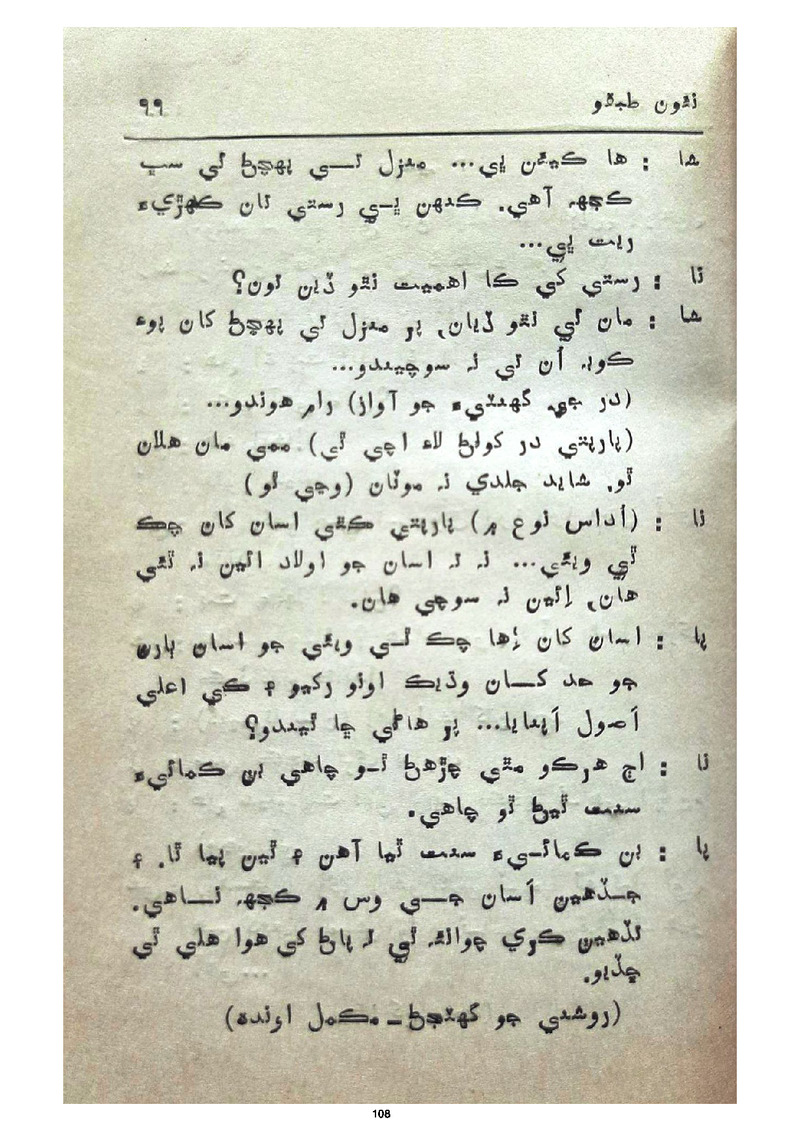 نئون طبقو ٩٩
شا : ها ڪيئن ڀي... منزل تــي پهچڻ ئي سڀ
ڪجهہ آهي. ڪنهن ڀــي رستي تان ڪهڙيءَ
ريت ڀي...
تا : رستي کي ڪا اهميت نٿو ڏين تون؟
شا : مان ئي نٿو ڏيان، پر منزل تي پهچڻ کان پوءِ
ڪوبہ اُن تي نہ سوچيندو...
(در جي گهنٽيءَ جو آواز) رام هوندو...
(پاربتي در کولڻ لاءِ اچي ٿي) ممي مان هلان
ٿو. شايد جلدي نہ موٽان (وڃي ٿو)
تا : (اُداس نوع ۾) پاربتي ڪٿي اسان کان چڪ
ٿي ويئي... نہ نہ اسان جو اولاد ائين نہ ٿئي
هان، اِئين نہ سوچي هان.
پا : اسان کان اِها چڪ ٿــي ويئي جو اسان ٻارن
جو حد کــان وڌيڪ اونو رکيو ۽ ڪي اعليٰ
اُصول اَپنايا... پر هاڻي ڇا ٿيندو؟
تا : اڄ هرڪو مٿي چڙهڻ ٿــو چاهي بن ڪمائيءَ
سنت ٿيڻ ٿو چاهي.
پا : بن ڪمائــيءَ سنت ٿيا آهن ۽ ٿين پيا ٿا. ۽
جــڏهين اَسان جــي وس ۾ ڪجهہ نــاهي.
تڏهين ڪري چوائڻ. ئي نہ پاڻ کي هوا هلي تي
ڇڏيو.
(روشني جو گهٽجڻ ــ مڪمل اونده)
108